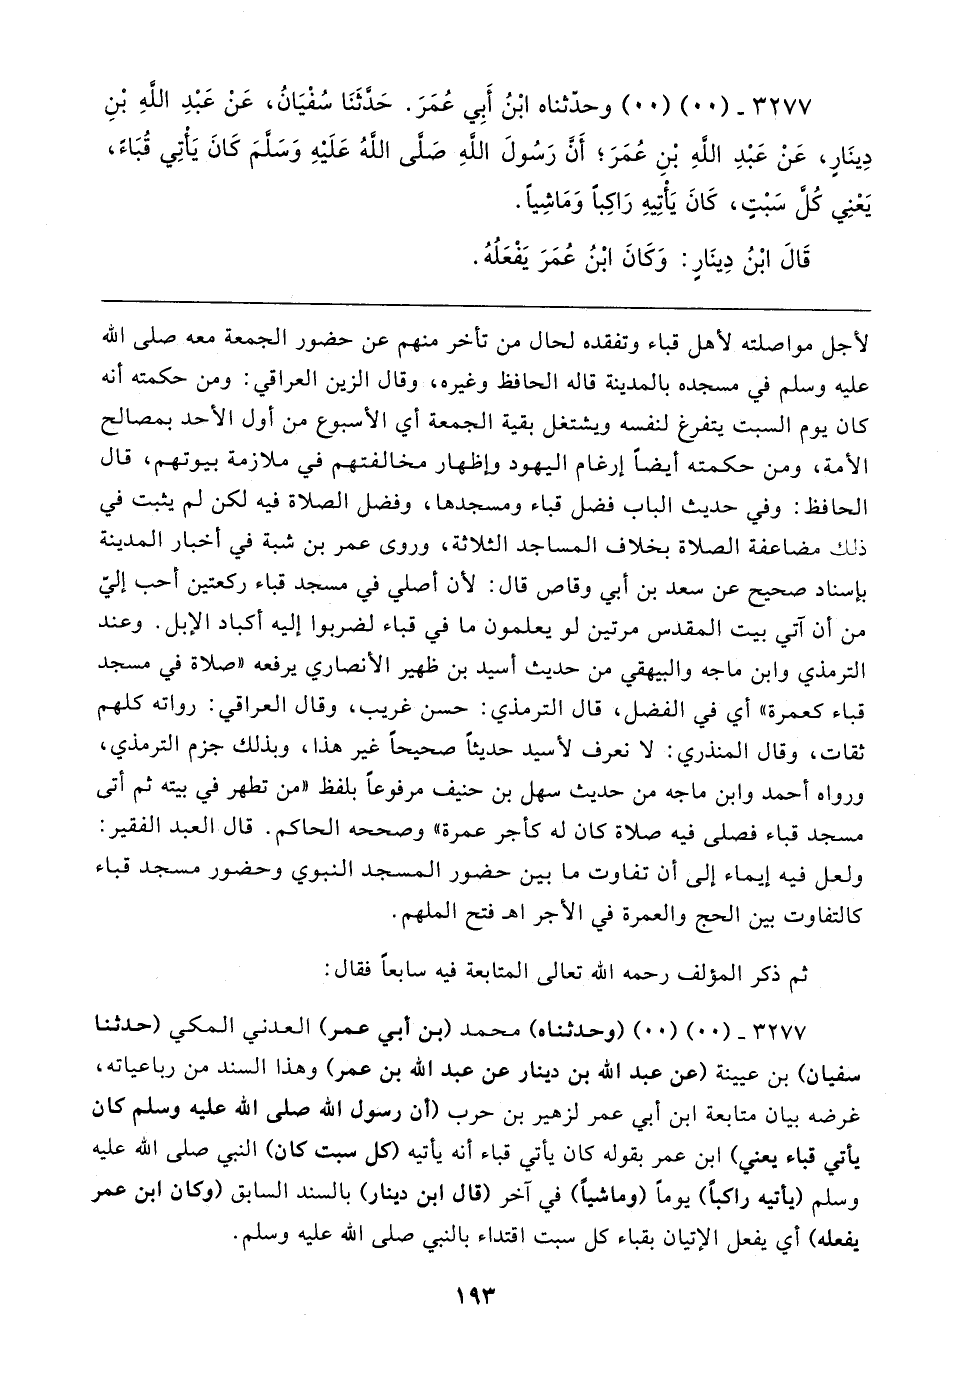 ٣٢٧٧ - (٠٠) (٠٠) وحدّثناه ابْنُ أَبِي عُمَرَ. حَدَّثَنَا سُفْيَانُ، عَنْ عَبْدِ اللَّهِ بْنِ
دِينَارٍ، عَنْ عَبْدِ اللَّهِ بْنِ عُمَرَ؛ أَنَّ رَسُولَ اللَّهِ صَلَّى اللَّهُ عَلَيْهِ وَسَلَّمَ كَانَ يَأْتِي قُبَاءً،
يَعْنِي كُلَّ سَبْتٍ، كَانَ يَأْتِيهِ رَاكِباً وَمَاشِياً.
قَالَ ابْنُ دِينَارٍ: وَكَانَ ابْنُ عُمَرَ يَفْعَلُهُ.
لأجل مواصلته لأهل قباء وتفقده لحال من تأخر منهم عن حضور الجمعة معه صلى الله
عليه وسلم في مسجده بالمدينة قاله الحافظ وغيره، وقال الزين العراقي: ومن حكمته أنه
كان يوم السبت يتفرغ لنفسه ويشتغل بقية الجمعة أي الأسبوع من أول الأحد بمصالح
الأمة، ومن حكمته أيضاً إرغام اليهود وإظهار مخالفتهم في ملازمة بيوتهم، قال
الحافظ: وفي حديث الباب فضل قباء ومسجدها، وفضل الصلاة فيه لكن لم يثبت في
ذلك مضاعفة الصلاة بخلاف المساجد الثلاثة، وروى عمر بن شبة في أخبار المدينة
بإسناد صحيح عن سعد بن أبي وقاص قال: لأن أصلي في مسجد قباء ركعتين أحب إليّ
من أن آتي بيت المقدس مرتين لو يعلمون ما في قباء لضربوا إليه أكباد الإبل. وعند
الترمذي وابن ماجه والبيهقي من حديث أسيد بن ظهير الأنصاري يرفعه «صلاة في مسجد
قباء كعمرة» أي في الفضل، قال الترمذي: حسن غريب، وقال العراقي: رواته كلهم
ثقات، وقال المنذري: لا نعرف لأسيد حديثاً صحيحاً غير هذا، وبذلك جزم الترمذي،
ورواه أحمد وابن ماجه من حديث سهل بن حنيف مرفوعاً بلفظ «من تطهر في بيته ثم أتى
مسجد قباء فصلى فيه صلاة كان له كأجر عمرة» وصححه الحاكم. قال العبد الفقير:
ولعل فيه إيماء إلى أن تفاوت ما بين حضور المسجد النبوي وحضور مسجد قباء
كالتفاوت بين الحج والعمرة في الأجر اهـ فتح الملهم.
ثم ذكر المؤلف رحمه الله تعالى المتابعة فيه سابعاً فقال:
٣٢٧٧ - (٠٠) (٠٠) (وحدثناه) محمد (بن أبي عمر) العدني المكي (حدثنا
سفيان) بن عيينة (عن عبد الله بن دينار عن عبد الله بن عمر) وهذا السند من رباعياته،
غرضه بيان متابعة ابن أبي عمر لزهير بن حرب (أن رسول الله صلى الله عليه وسلم كان
يأتي قباء يعني) ابن عمر بقوله كان يأتي قباء أنه يأتيه (كل سبت كان) النبي صلى الله عليه
وسلم (يأتيه راكباً) يوماً (وماشياً) في آخر (قال ابن دينار) بالسند السابق (وكان ابن عمر
يفعله) أي يفعل الإتيان بقباء كل سبت اقتداء بالنبي صلى الله عليه وسلم.
١٩٣